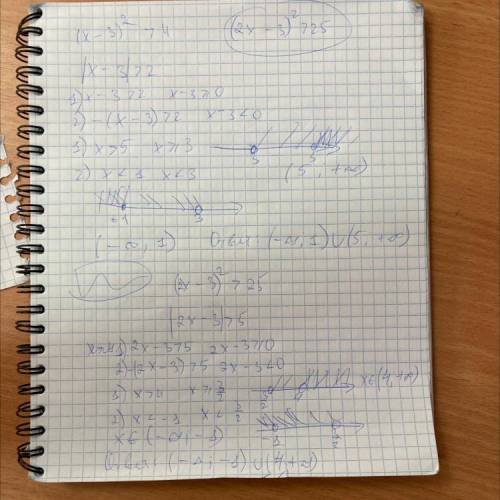 (x-3)² > 4
(2x-3)² > 25
|x-3| > 2
1) x-3 > 2 x-3 ≥ 0
2) -(x-3) > 2 x-3 < 0
1) x > 5 x ≥ 3
3 5
2) x < 1 x < 3
(5, +∞)
1 3
(-∞, 1) Ответ: (-∞, 1) ∪ (5, +∞)
(2x-3)² > 25
|2x-3| > 5
1) 2x-3 > 5 2x-3 ≥ 0
2) -(2x-3) > 5 2x-3 < 0
1) x > 4 x ≥ 3/2 x ∈ (4, +∞)
2) x < -1 x < 3/2
x ∈ (-∞, -1)
-1
Ответ: (-∞; -1) ∪ (4, +∞)